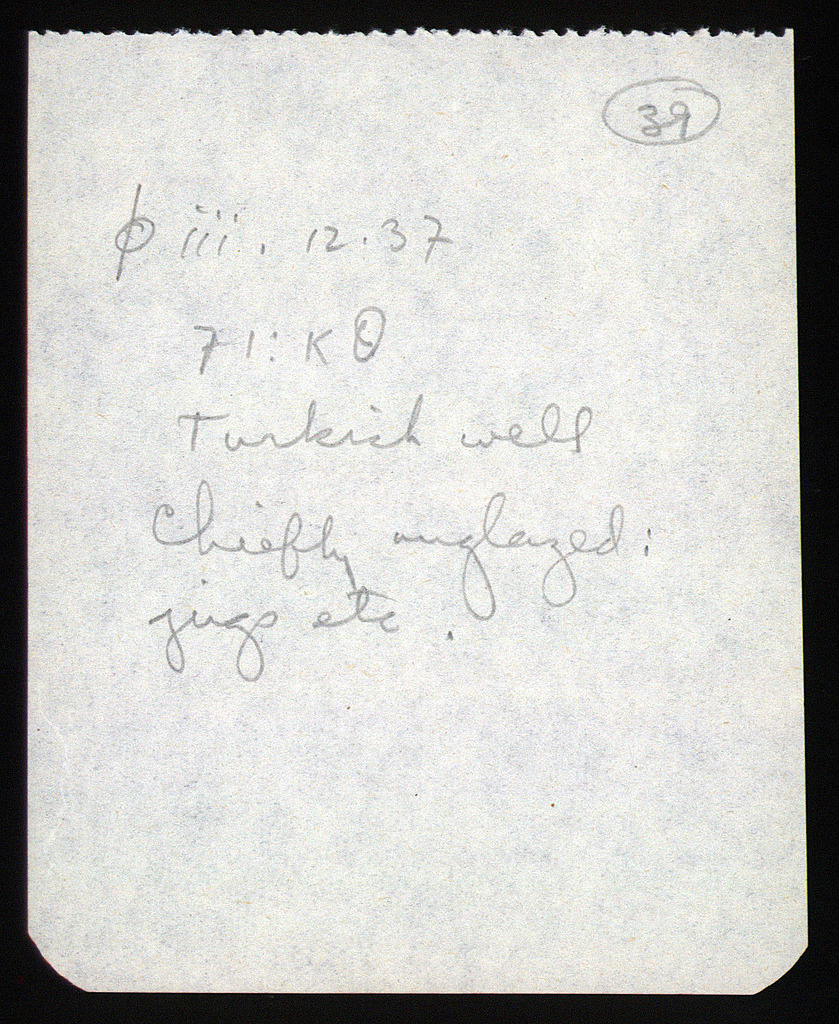 39
φ iii. 12.37
71: K Θ
Turkish well
Chiefly unglazed:
jugs etc.